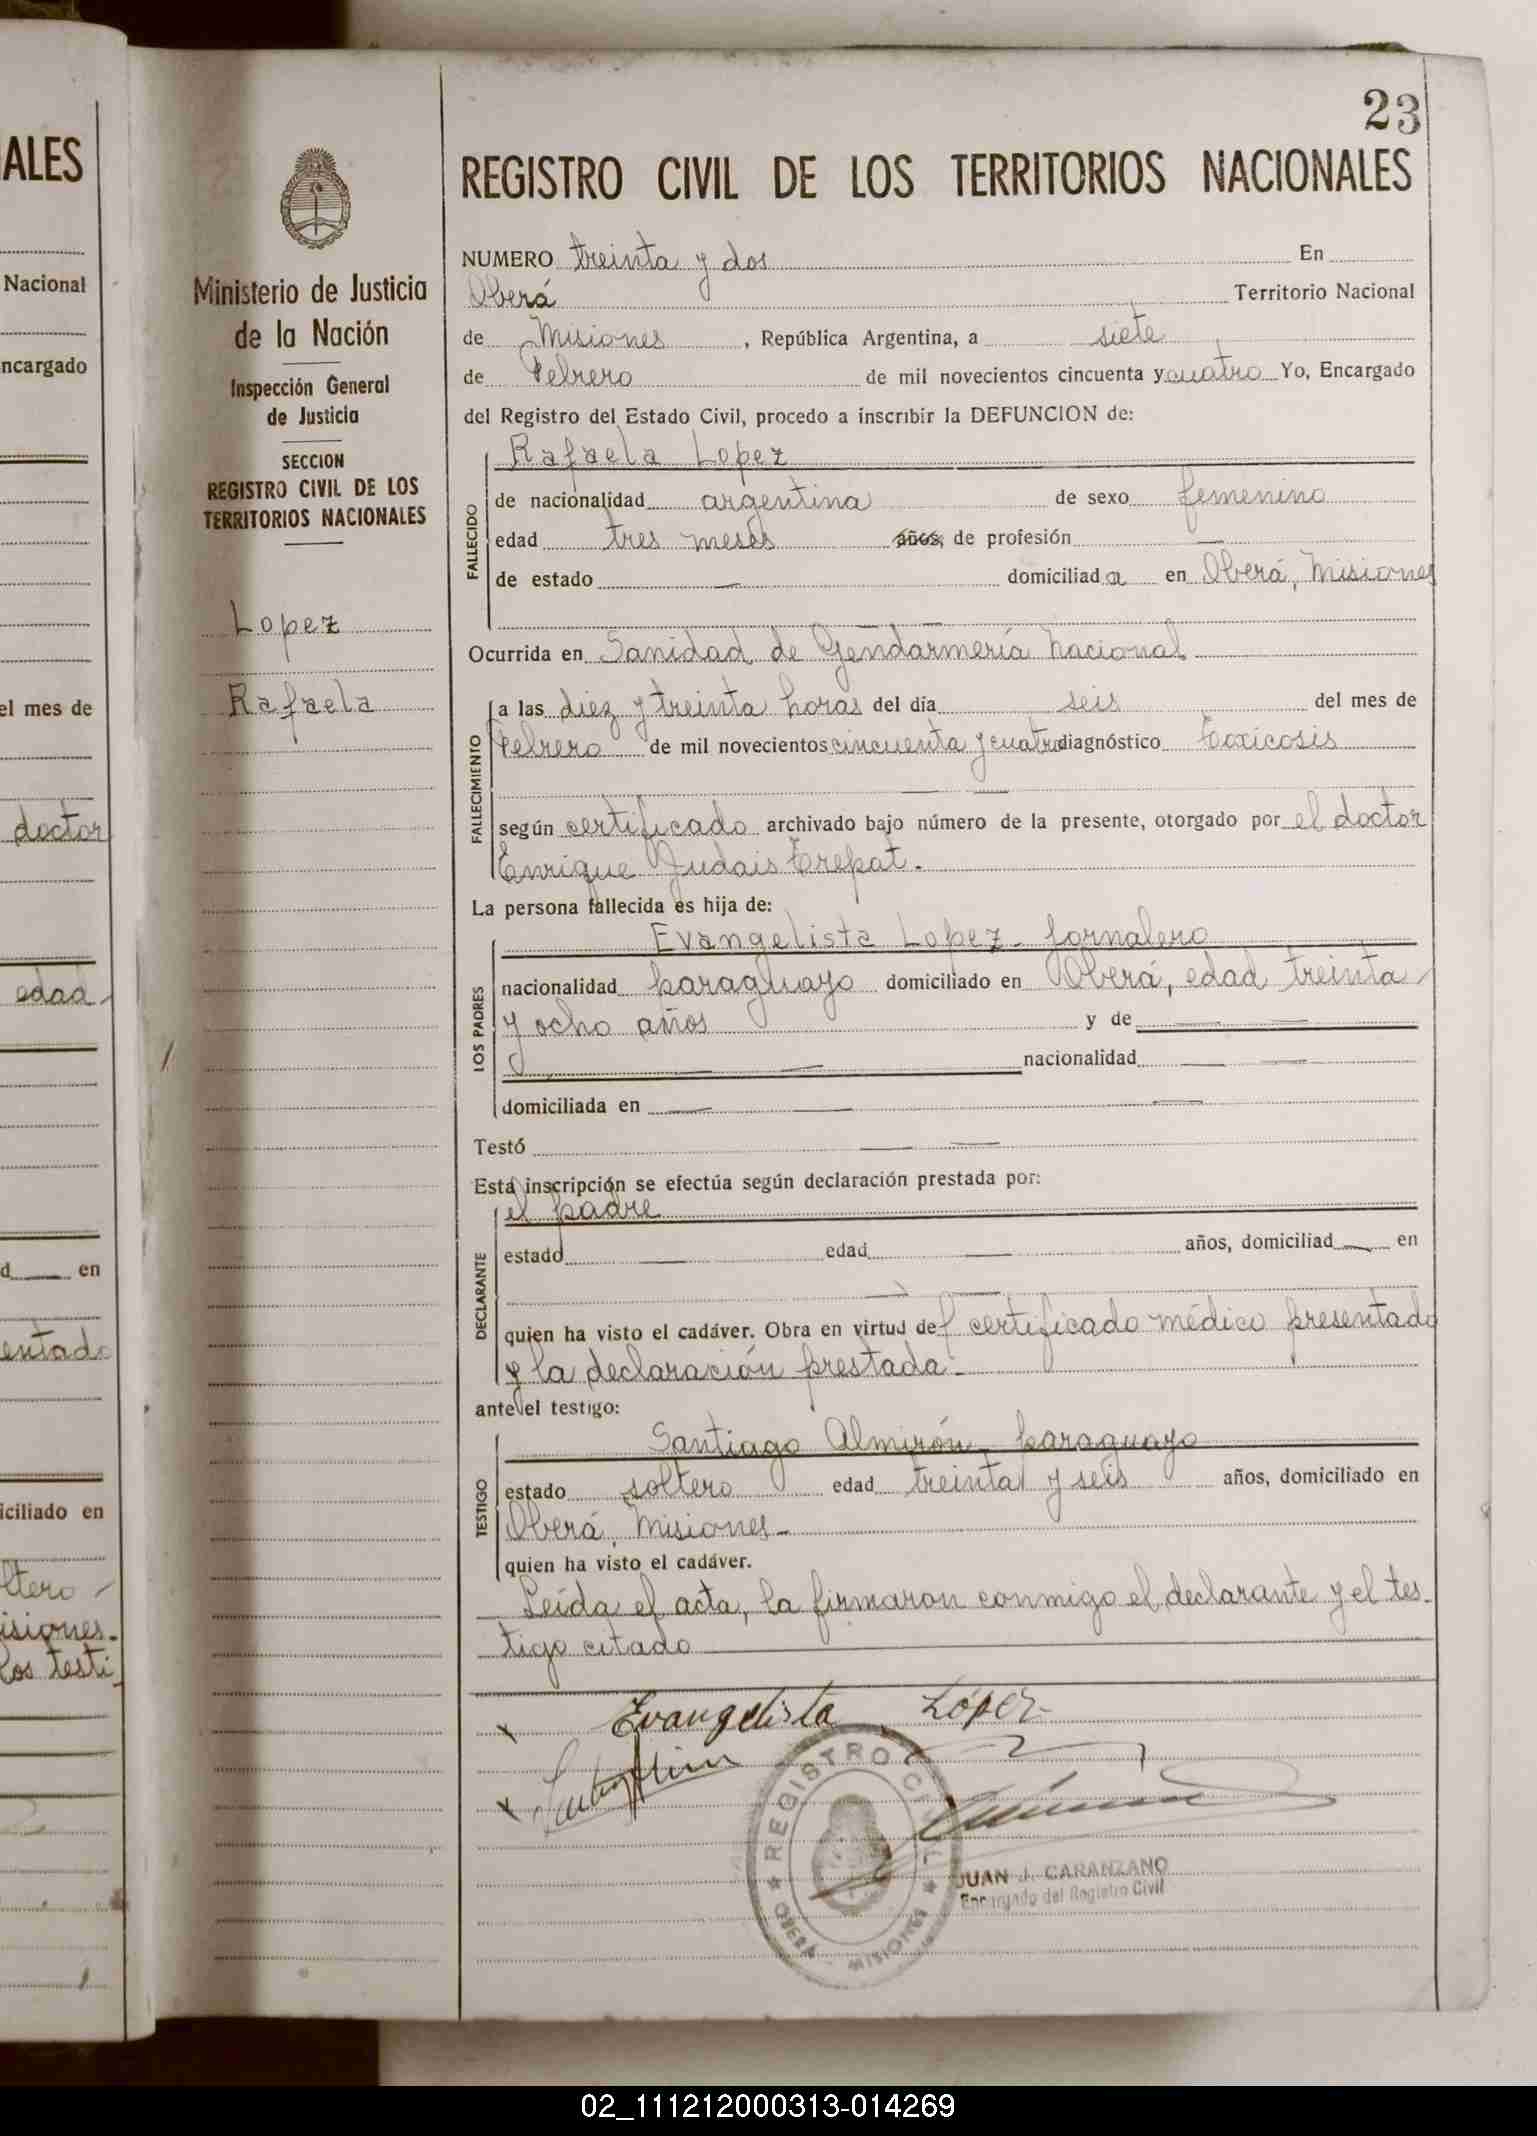 23
REGISTRO CIVIL DE LOS TERRITORIOS NACIONALES
Ministerio de Justicia
de la Nación
Inspección General
de Justicia
SECCION
REGISTRO CIVIL DE LOS
TERRITORIOS NACIONALES
Lopez
Rafaela
NUMERO treinta y dos En
Oberá Territorio Nacional
de Misiones, República Argentina, a siete
de Febrero de mil novecientos cincuenta y cuatro Yo, Encargado
del Registro del Estado Civil, procedo a inscribir la DEFUNCION de:
FALLECIDO
Rafaela Lopez
de nacionalidad argentina de sexo femenino
edad tres meses años, de profesión —
de estado — domiciliada en Oberá, Misiones
Ocurrida en Sanidad de Gendarmería Nacional
FALLECIMIENTO
a las diez y treinta horas del día seis del mes de
Febrero de mil novecientos cincuenta y cuatro diagnóstico Toxicosis
según certificado archivado bajo número de la presente, otorgado por el doctor
Enrique Judais Trepat.
La persona fallecida es hija de:
LOS PADRES
Evangelista Lopez - Jornalero
nacionalidad paraguayo domiciliado en Oberá, edad treinta
y ocho años y de — —
— — nacionalidad — —
domiciliada en — — —
Testó — —
Esta inscripción se efectúa según declaración prestada por:
DECLARANTE
el padre
estado — edad — años, domiciliad — en
— —
quien ha visto el cadáver. Obra en virtud del certificado médico presentado
y la declaración prestada.-
ante el testigo:
TESTIGO
Santiago Almirón - paraguayo
estado soltero edad treinta y seis años, domiciliado en
Oberá, Misiones -
quien ha visto el cadáver.
Leída el acta, la firmaron conmigo el declarante y el tes-
tigo citado
Evangelista López
REGISTRO CIVIL
OBERA - MISIONES
JUAN J. CARANZANO
Encargado del Registro Civil
ALES
Nacional
ncargado
el mes de
doctor
edad
d — en
entado
iciliado en
ltero
isiones.
los testi
02_111212000313-014269